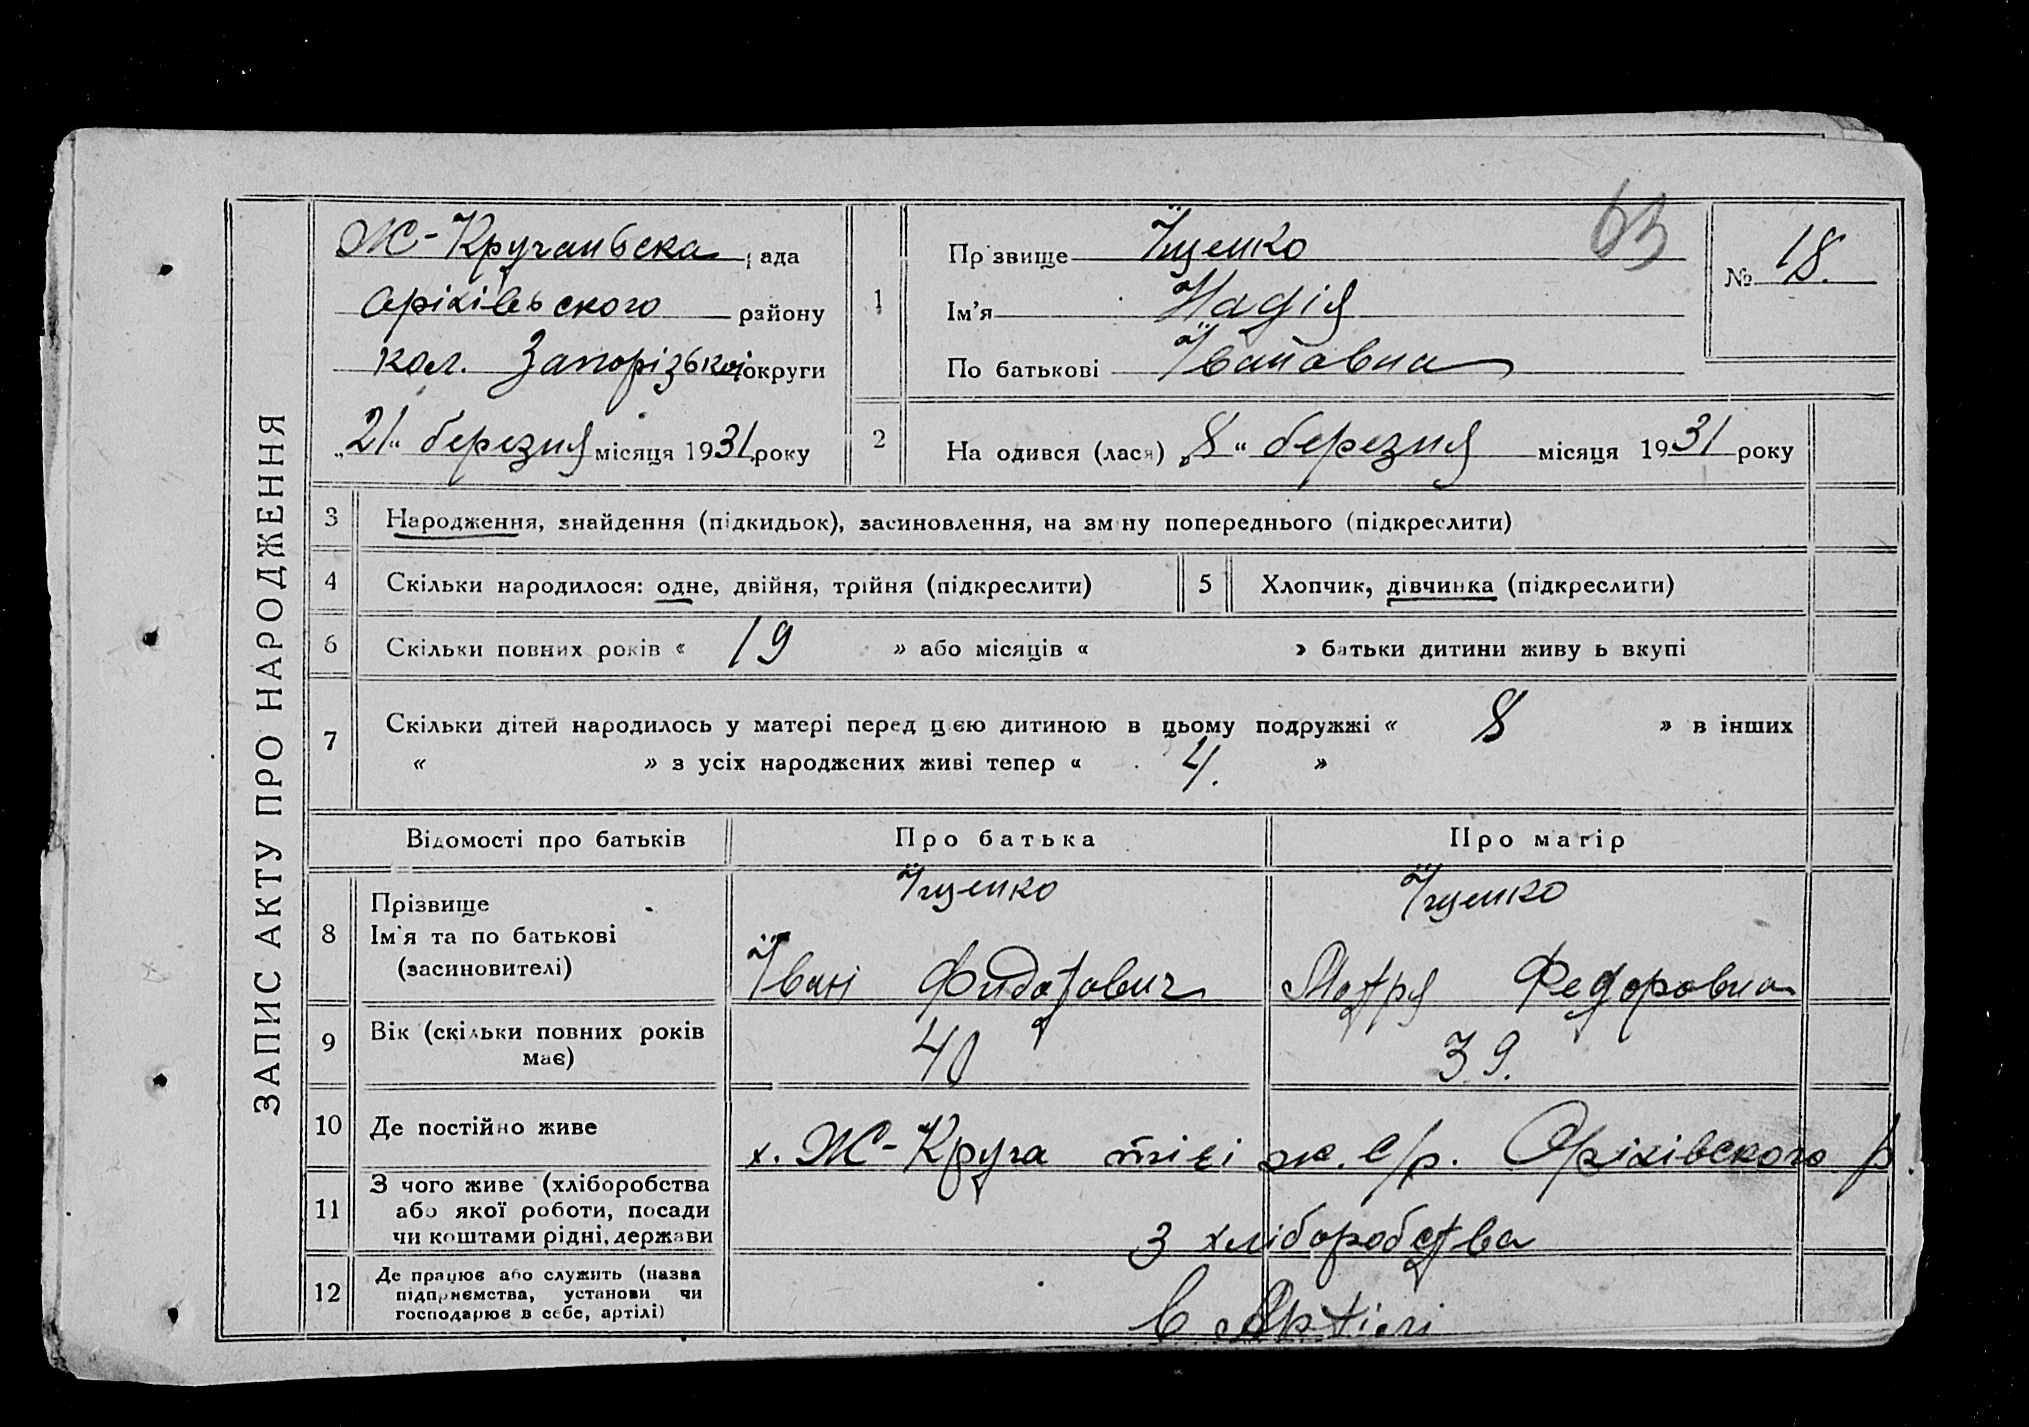 ЗАПИС АКТУ ПРО НАРОДЖЕННЯ
Ж-Кручанська рада
Оріхівського району
кол. Запорізької округи
„21“ березня місяця 1931 року
63
№ 18.
1
Прізвище Іщенко
Ім'я Надія
По батькові Івановна
2
Народився (лася) „8“ березня місяця 1931 року
3 Народження, знайдення (підкидьок), засиновлення, на зміну попереднього (підкреслити)
4 Скільки народилося: одне, двійня, трійня (підкреслити)
5 Хлопчик, дівчинка (підкреслити)
6 Скільки повних років « 19 » або місяців « » батьки дитини живуть вкупі
7 Скільки дітей народилось у матері перед цією дитиною в цьому подружжі « 8 » в інших
« » з усіх народжених живі тепер « 4. »
Відомості про батьків Про батька Про матір
8 Прізвище
Ім'я та по батькові
(засиновителі)
Іщенко
Іван
Іщенко
Мотря Федоровна
9 Вік (скільки повних років
має)
40 39.
10 Де постійно живе
х. Ж-Круча тієї ж. с/р. Оріхівского р.
11 З чого живе (хліборобства
або якої роботи, посади
чи коштами рідні, держави
з хліборобства
12 Де працює або служить (назва
підприємства, установи чи
господарює в себе, артілі)
в Артілі